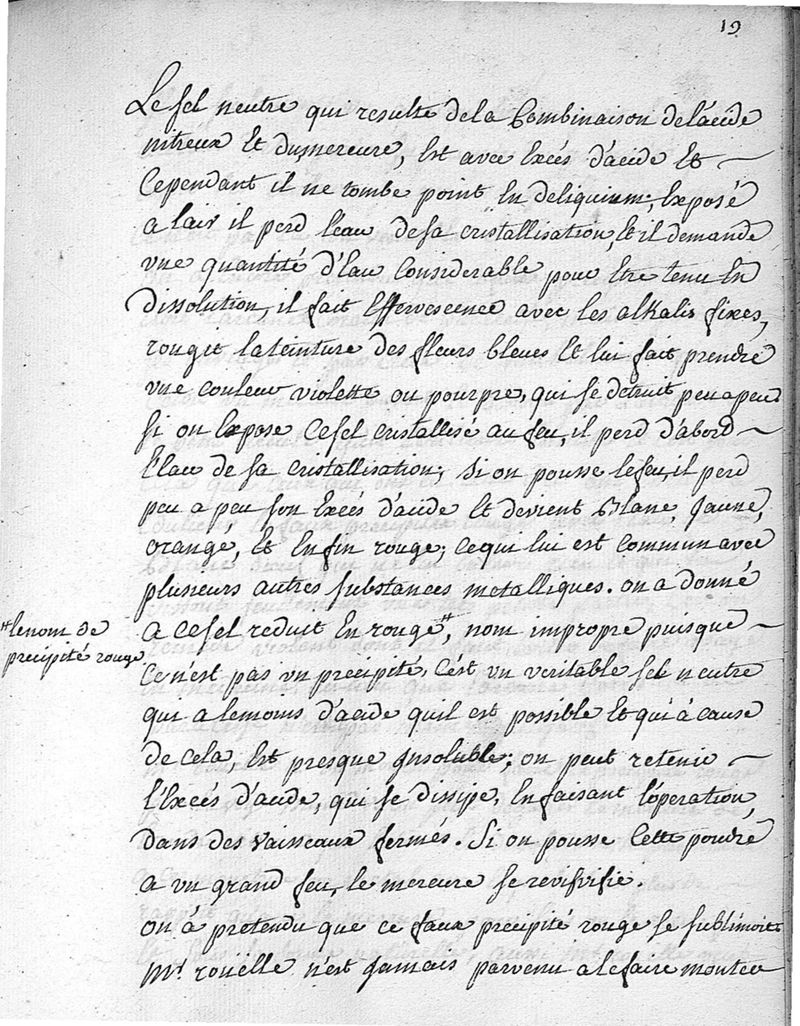 19
Le sel neutre qui resulte de la Combinaison de l'acide
nitreux Et du mercure, Est avec Excés d'acide Et
Cependant il ne tombe point En deliquium, Exposé
a l'air il perd l'eau de sa cristallisation, Et il demande
une quantité d'Eau Considerable pour Etre tenu En
Dissolution, il fait Effervescence avec les alkalis fixes,
rougit la teinture des fleurs bleues Et lui fait prendre
une couleur violette ou pourpre, qui se detruit peu a peu
si on Expose Ce sel cristallisé au feu, il perd d'abord
l'Eau de sa cristallisation; si on pousse le feu, il perd
peu a peu son Excés d'acide Et devient Blanc, Jaune,
orange, Et Enfin rouge; ce qui lui est commun avec
plusieurs autres substances metalliques. on a donné
a Ce sel reduit En rouge#, nom impropre puisque
#le nom de
precipité rouge
Ce n'est pas un precipité, C'est un veritable sel neutre
qui a le moins d'acide qu'il est possible Et qui à cause
de Cela, Est presque Insoluble; on peut retenir
l'Excés d'acide, qui se dissipe, En faisant l'operation,
dans des vaisseaux fermés. Si on pousse Cette poudre
a un grand feu, le mercure se revifvifie.
on à pretendu que ce faux precipité rouge se sublimoit
Mr. rouelle n'est Jamais parvenu a le faire monter